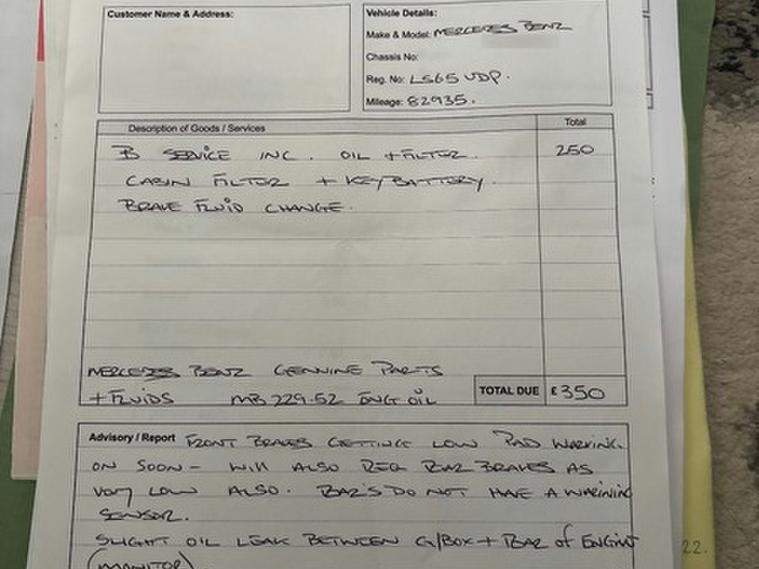 Customer Name & Address:
Vehicle Details:
Make & Model: MERCEDES BENZ
Chassis No:
Reg. No: LS65 UDP.
Mileage: 82935.
Description of Goods / Services
Total
B SERVICE INC. OIL + FILTER. 250
CABIN FILTER + KEY BATTERY.
BRAKE FLUID CHANGE.
MERCEDES BENZ GENUINE PARTS
+ FLUIDS MB 229.52 ENG OIL
TOTAL DUE £ 350
Advisory / Report FRONT BRAKES GETTING LOW PAD WARNING
ON SOON - WILL ALSO REQ REAR BRAKES AS
VERY LOW ALSO. REAR'S DO NOT HAVE A WARNING
SENSOR.
SLIGHT OIL LEAK BETWEEN G/BOX + REAR OF ENGINE
(MONITOR)
22.